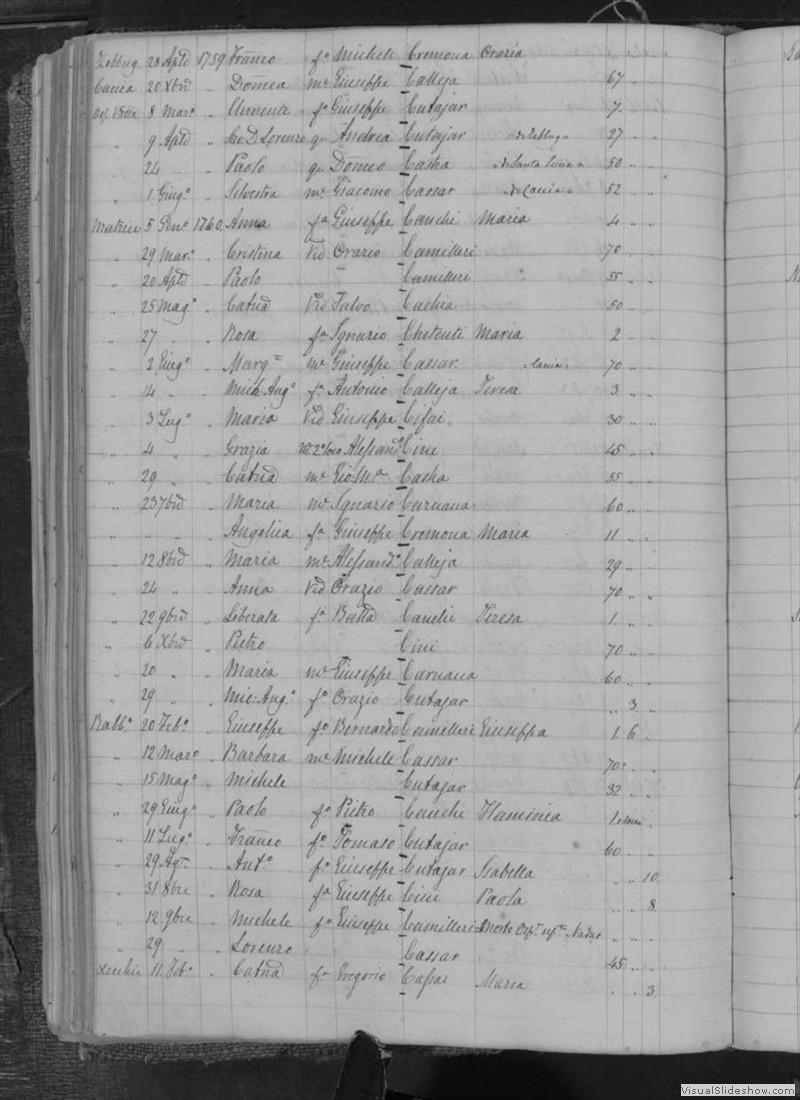 Zebbug 28 Aple 1759 Franco fo Michele Cremona Orazia " " "
Caccia 20 Xbre " Domca me Giuseppe Calleja 67 " "
8 Maro " Clemente fo Giuseppe Cutajar 7 " "
" 9 Aple " Sac D Lorenzo qm Andrea Cutajar " da Zebbug " 27 " "
" 24 " " Paolo qm Domco Casha " da Santa Lucia " 50 " "
" 1 Giugo " Silvestra me Giacomo Cassar " da Caccia " 52 " "
Matrice 5 Geno 1760 Anna fa Giuseppe Cauchi Maria 4 " "
" 29 Maro " Cristina Vid Orazio Camilleri 70 " "
" 20 Aple " Paolo Camilleri 55 " "
" 25 Mago " Catna Vid Salvo Cachia 50 " "
" 27 " " Rosa fa Ignazio Chetcuti Maria 2 " "
" 2 Giugo " Marga me Giuseppe Cassar 70 " "
" 14 " " Mich: Ango fo Antonio Calleja Teresa 3 " "
" 3 Lugo " Maria Vid Giuseppe Cifai 30 " "
" 4 " " Grazia Alessandro Cini 45 " "
" 29 " " Catna me Gio: Ma Casha 55 " "
" 23 7bre " Maria me Ignazio Caruana 60 " "
" " " " Angelica fa Giuseppe Cremona Maria 11 " "
" 12 8bre " Maria me Alessando Calleja 29 " "
" 24 " " Anna Vid Orazio Cassar 70 " "
" 22 9bre " Liberata fa Cauchi Teresa 1 " "
" 6 Xbre " Pietro Cini 70 " "
" 20 " " Maria me Giuseppe Caruana 60 " "
" 29 " " Mic: Ango fo Orazio Cutajar " 3 "
Rabbo 20 Febo " Giuseppe fo Bernardo Camilleri Giuseppa 1 6 "
" 12 Maro " Barbara me Michele Cassar 70 " "
" 15 Mago " Michele Cutajar 32 " "
" 29 Giugo " Paolo fo Pietro Cauchi Flaminia 1
" 11 Lugo " Franco fo Tomaso Cutajar 60 " "
" 29 Agto " Anto fo Giuseppe Cutajar Isabella " " 10
" 31 8bre " Rosa fa Giuseppe Cini Paola " " 8
" 12 9bre " Michele fo Giuseppe Camilleri Morto " " "
" 29 " " Lorenzo Cassar 45 " "
Xeuchia 11 Febo " Catna fa Gregorio Maria " " 3
VisualSlideshow.com